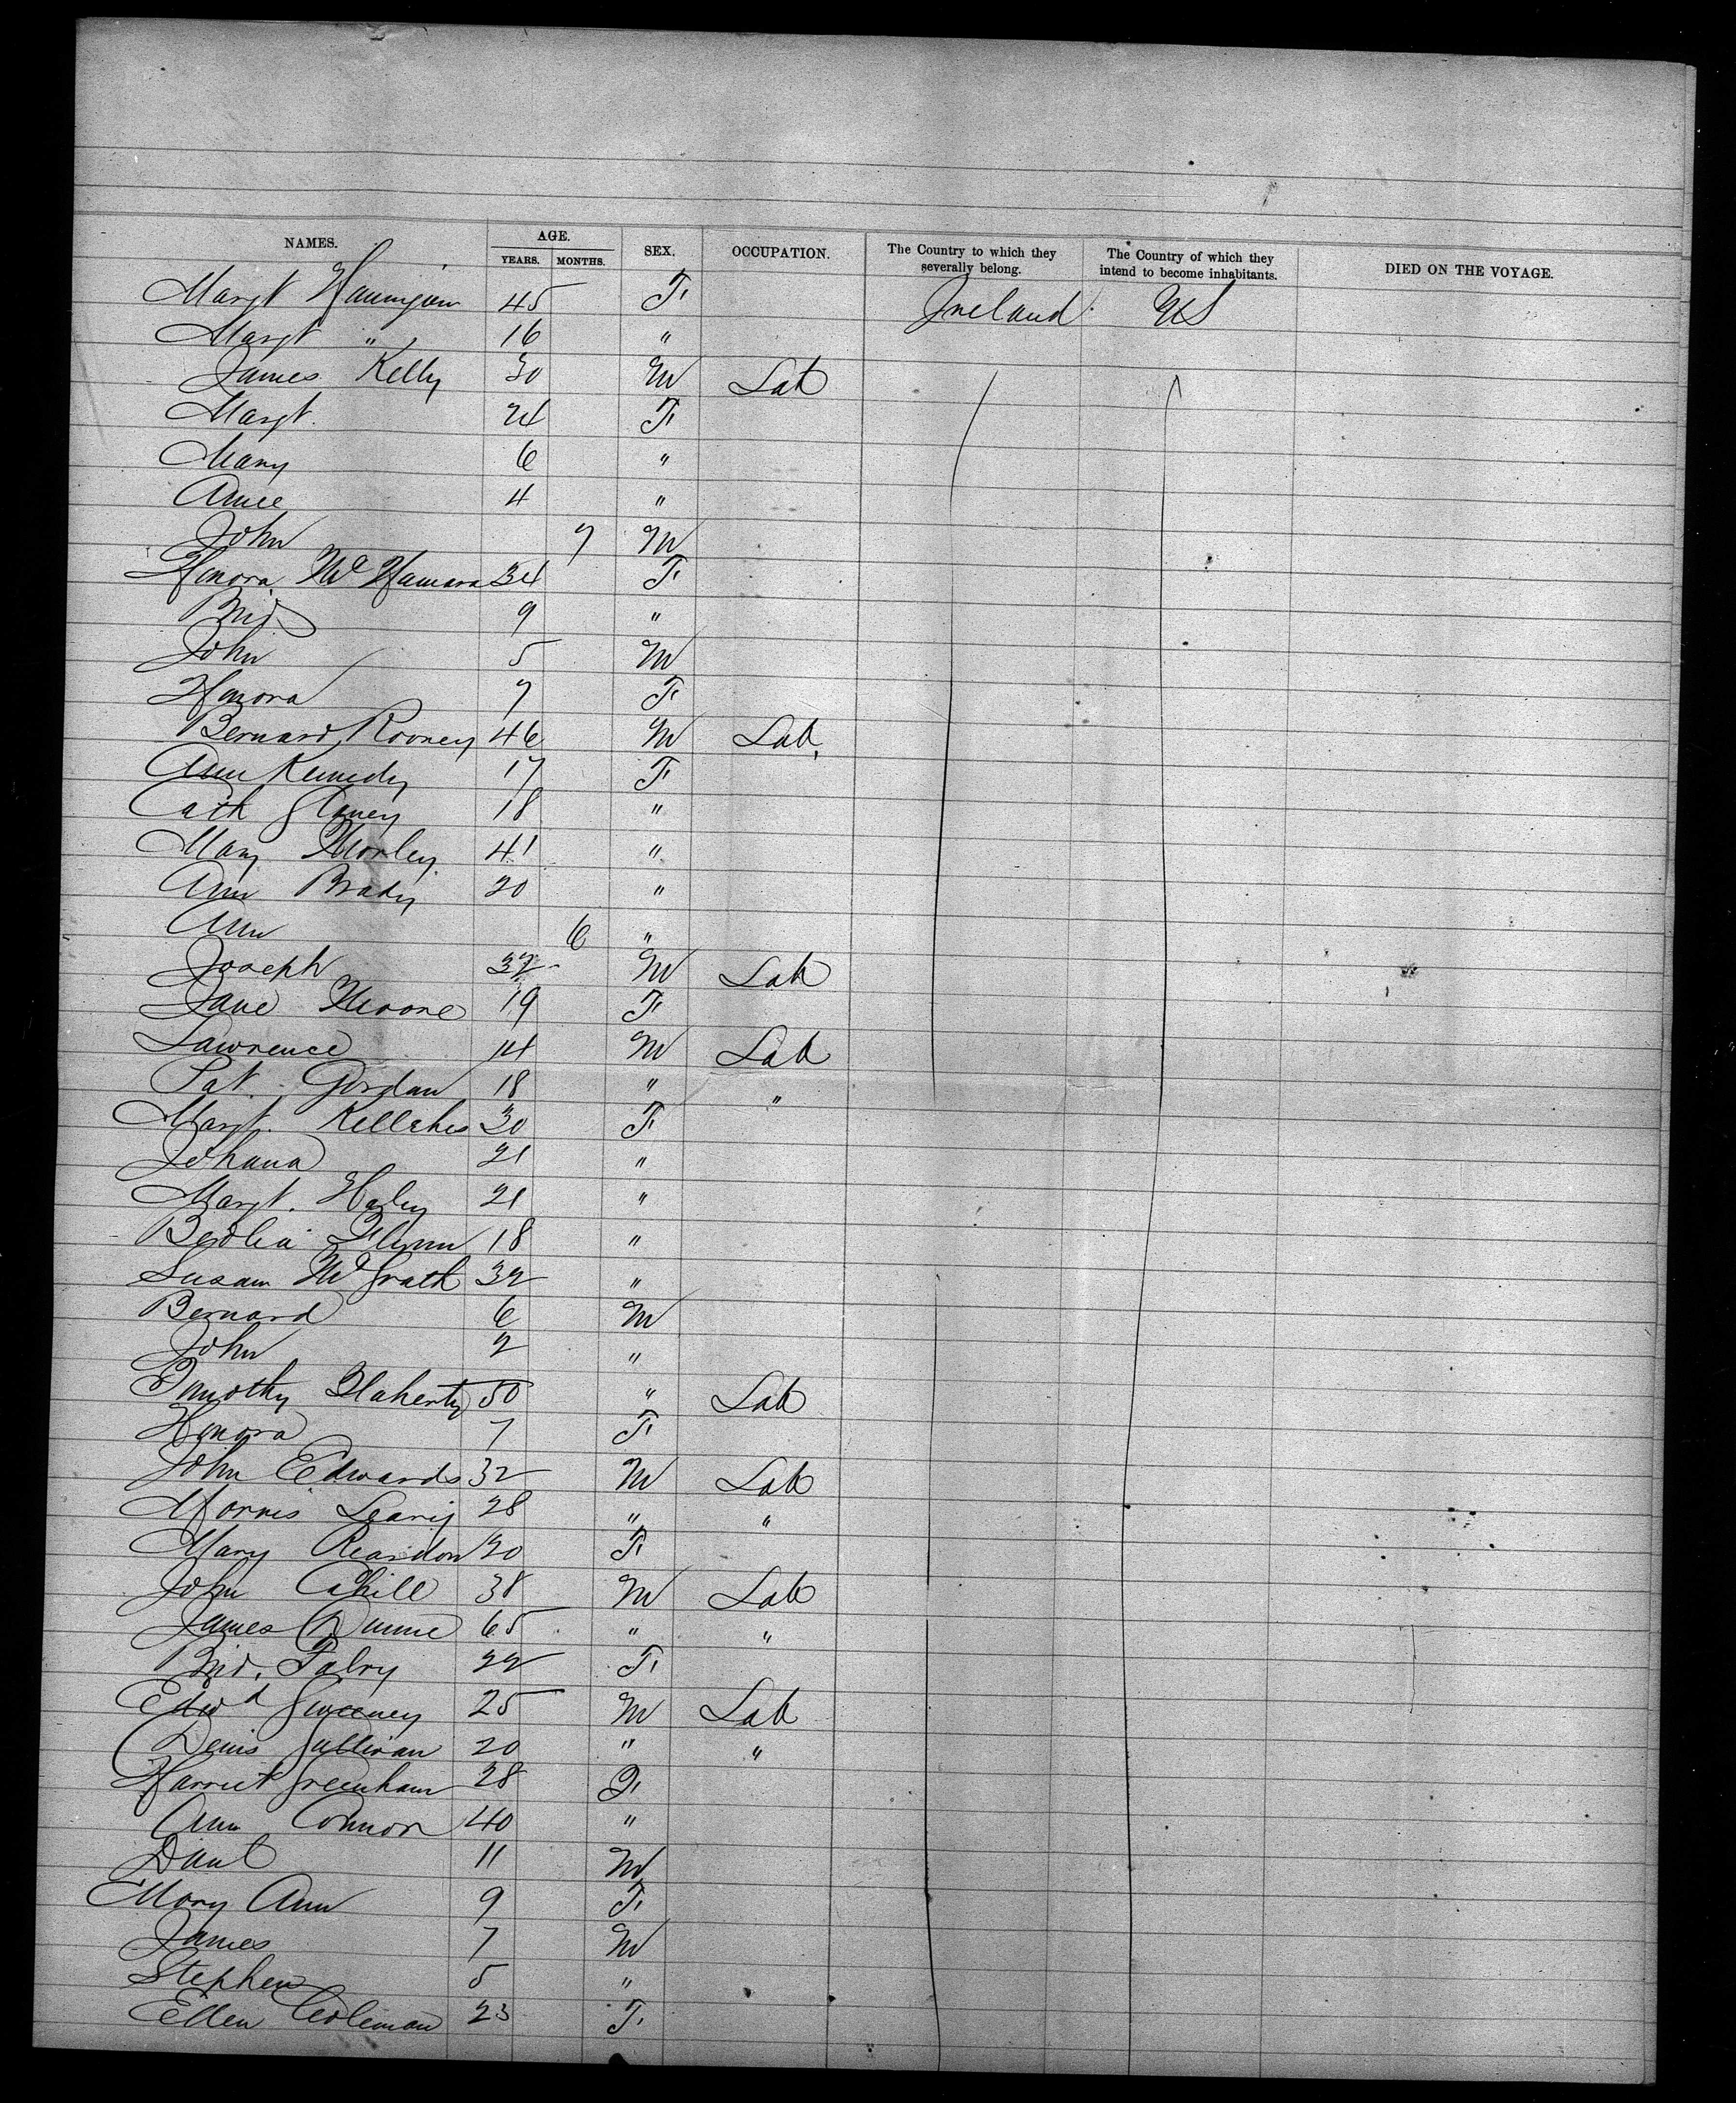 NAMES. AGE. SEX. OCCUPATION. The Country to which they severally belong. The Country of which they intend to become inhabitants. DIED ON THE VOYAGE.
YEARS. MONTHS.
Margt 45 F. Ireland. US
Margt " 16 "
James Kelly 30 M Lab
Margt. 24 F.
Mary 6 "
4 "
John 7 M
Honora McNamara 34 F.
Brid 9 "
John 5 M
Honora 7 F.
Bernard Rooney 46 M Lab.
Ann Kennedy 17 F.
Cath 18 "
Mary Morley 41 "
Ann Brady 20 "
Ann 6 "
Joseph 32 M Lab
Jane Moore 19 F.
Lawrence 14 M Lab
Pat. Gordan 18 " "
Margt. Kelleher 30 F.
Johana 21 "
Margt. Haley 21 "
Bedlia Flynn 18 "
Susan McGrath 32 "
Bernard 6 M
John 2 "
Timothy Flaherty 50 " Lab
Honora 7 F.
John Edwards 32 M Lab
Morris Leary 28 " "
Mary Reardon 20 F.
John Cahill 38 M Lab
James Dunne 65 " "
Brid. 22 F.
Edwd Sweeney 25 M Lab
Denis Sullivan 20 " "
Harriet Greenham 28 F.
Ann Connor 40 "
Danl 11 M
Mary Ann 9 F.
James 7 M
Stephen 5 "
Ellen Coleman 23 F.